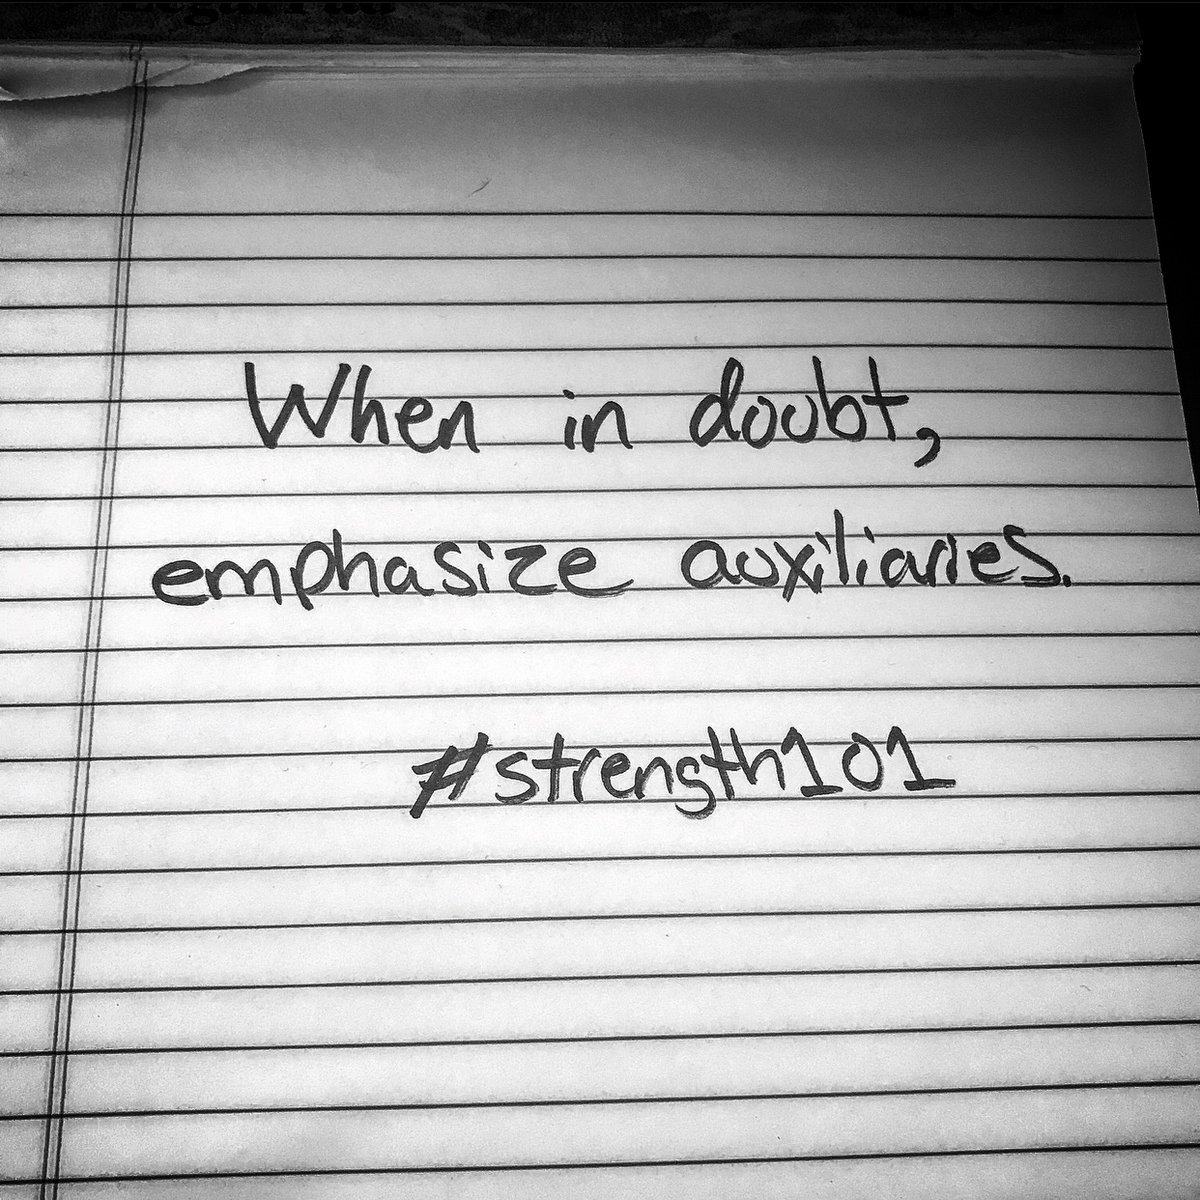 When in doubt,
emphasize auxiliaries.
#strength101